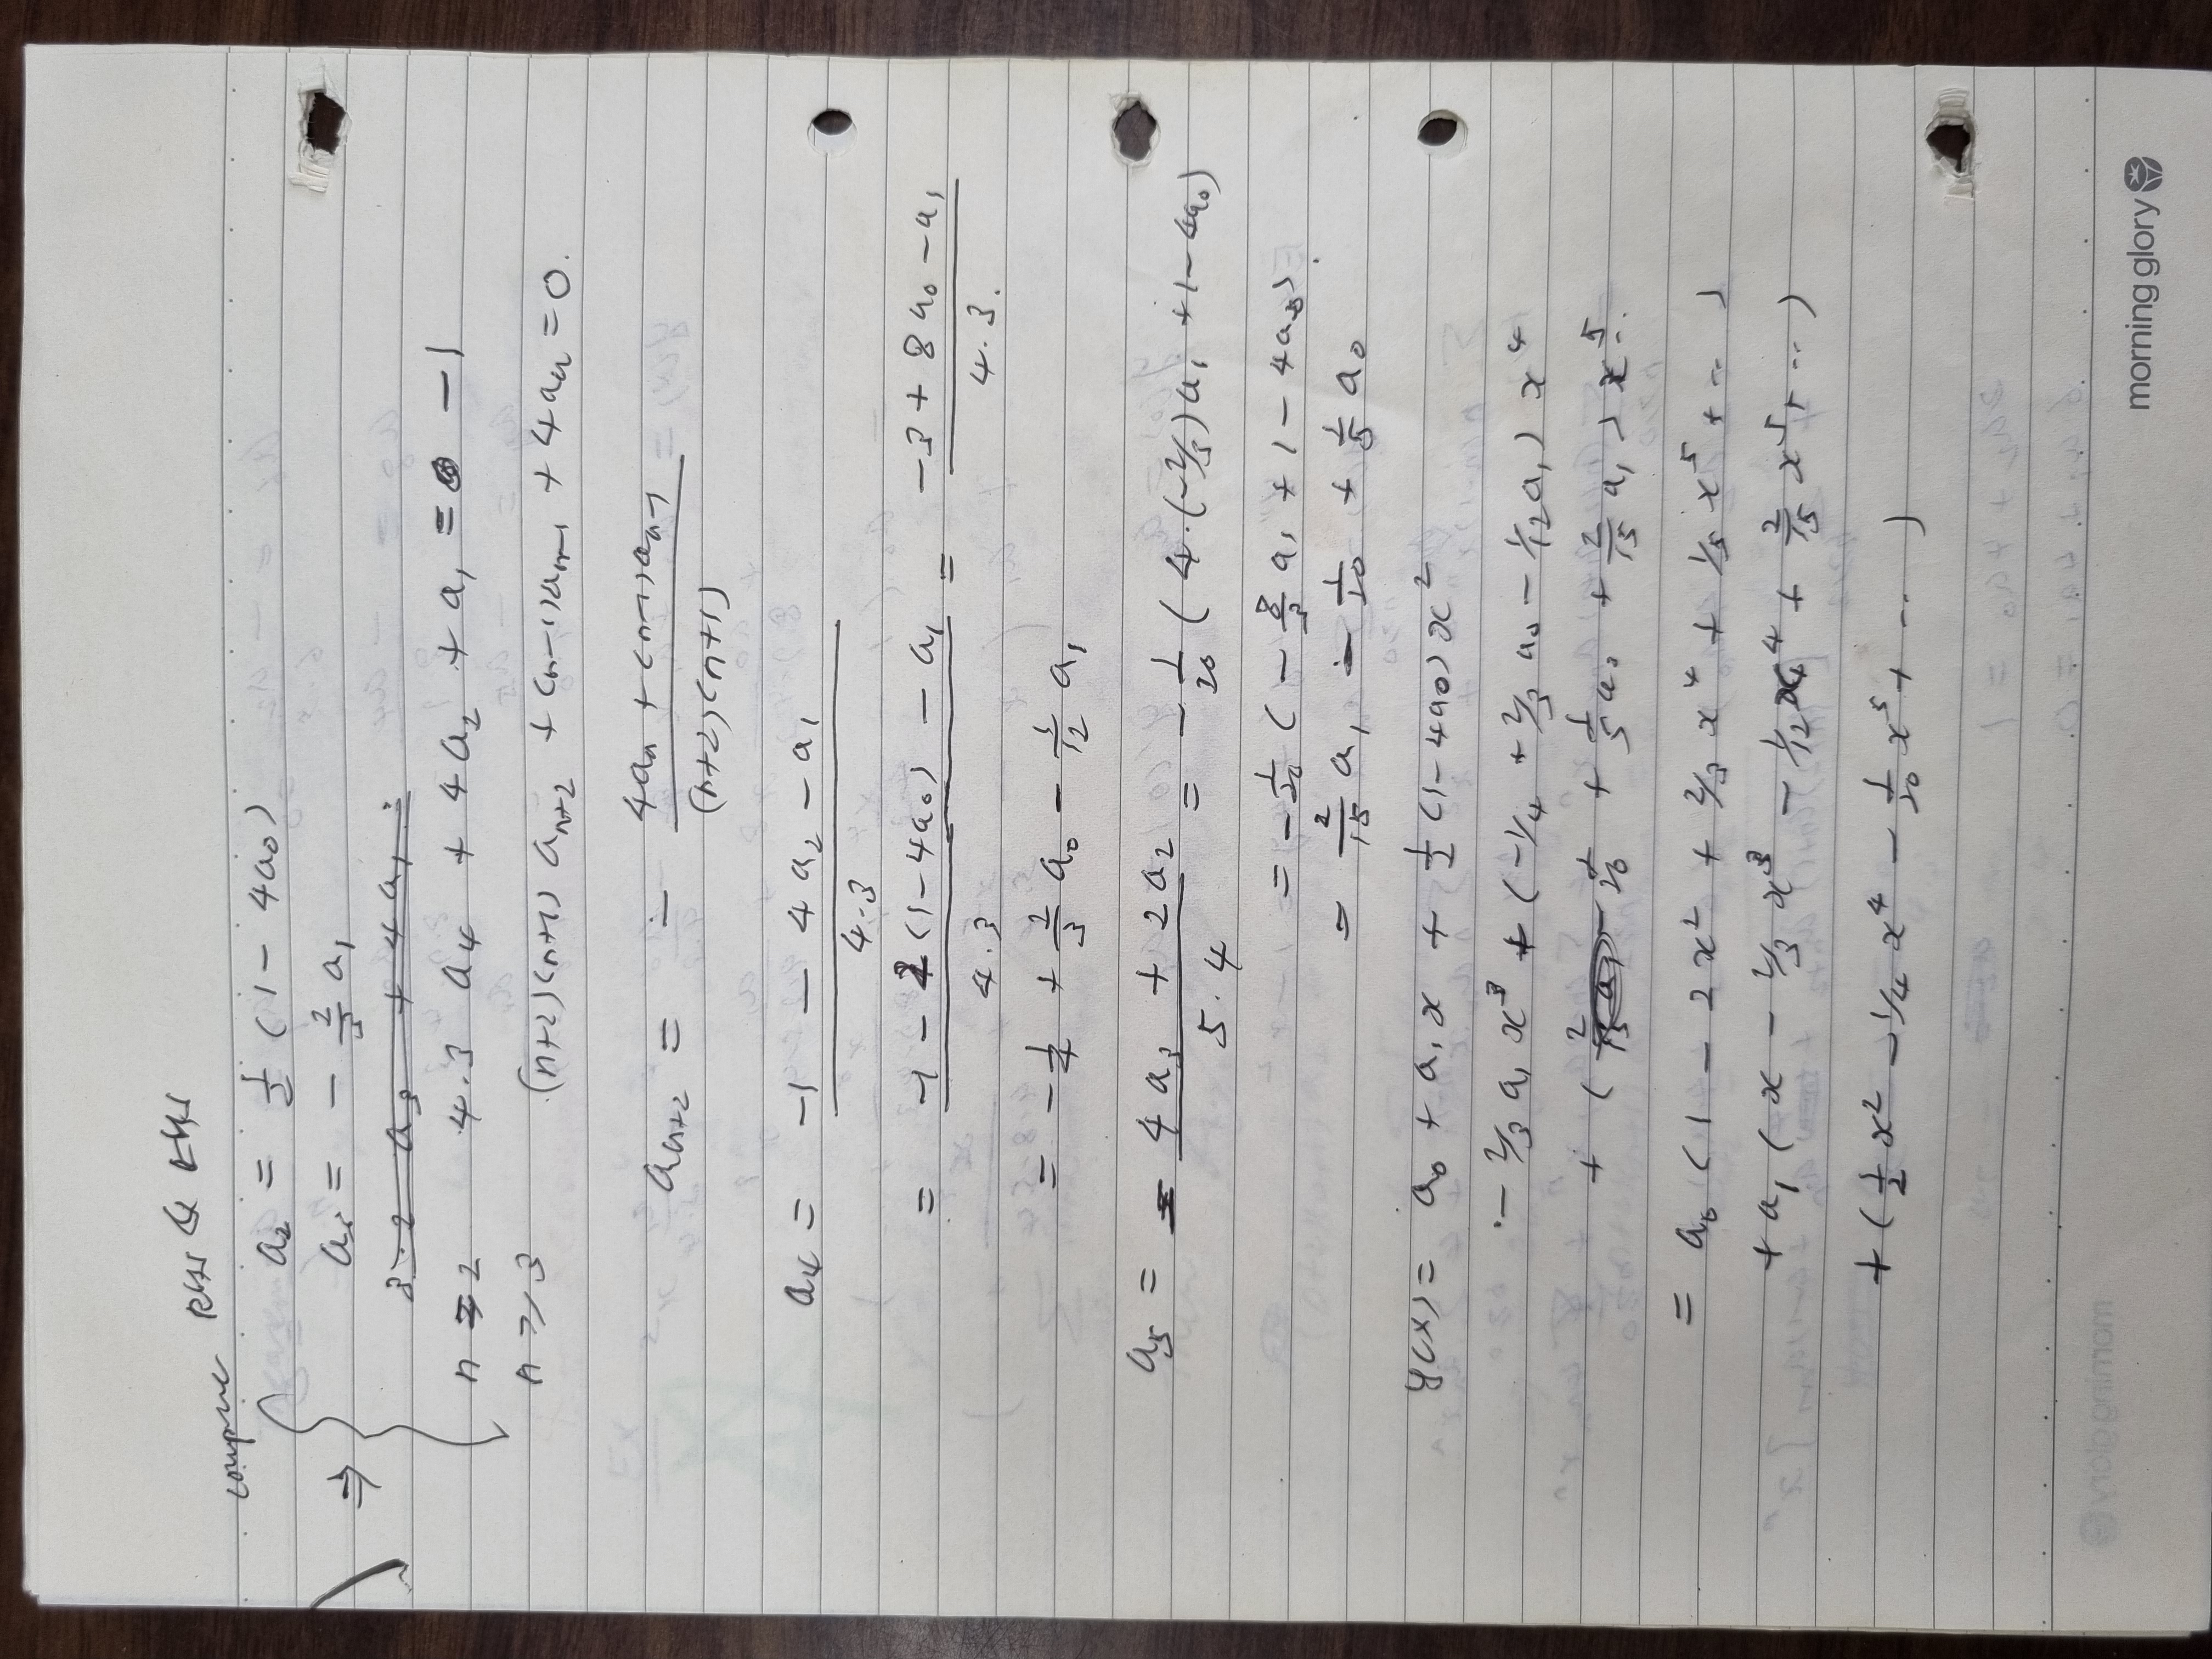 compare RHS & LHS
a₂ = 1/2 (1 - 4a₀)
⇒ a₃ = - 2/3 a₁
3·2 a₃ + 4a₁ =
n = 2 4·3 a₄ + 4a₂ + a₁ = -1
n ≥ 3 (n+2)(n+1) aₙ₊₂ + (n-1)aₙ₋₁ + 4aₙ = 0.
aₙ₊₂ = - (4aₙ + (n-1)aₙ₋₁)/((n+2)(n+1))
a₄ = (-1 - 4a₂ - a₁)/(4·3)
= (-1 - 2(1-4a₀) - a₁)/(4·3) = (-3 + 8a₀ - a₁)/(4·3).
= - 1/4 + 2/3 a₀ - 1/12 a₁
a₅ = - (4a₃ + 2a₂)/(5·4) = - 1/20 (4·(-2/3)a₁ + 1 - 4a₀)
= - 1/20 (- 8/3 a₁ + 1 - 4a₀).
= 2/15 a₁ - 1/20 + 1/5 a₀
y(x) = a₀ + a₁x + 1/2 (1-4a₀)x²
- 2/3 a₁x³ + (-1/4 + 2/3 a₀ - 1/12 a₁) x⁴
+ (- 1/20 + 1/5 a₀ + 2/15 a₁) x⁵ ..
= a₀ (1 - 2x² + 2/3 x⁴ + 1/5 x⁵ + ... )
+ a₁ (x - 2/3 x³ - 1/12 x⁴ + 2/15 x⁵ + ... )
+ (1/2 x² - 1/4 x⁴ - 1/20 x⁵ + ... )
morning glory